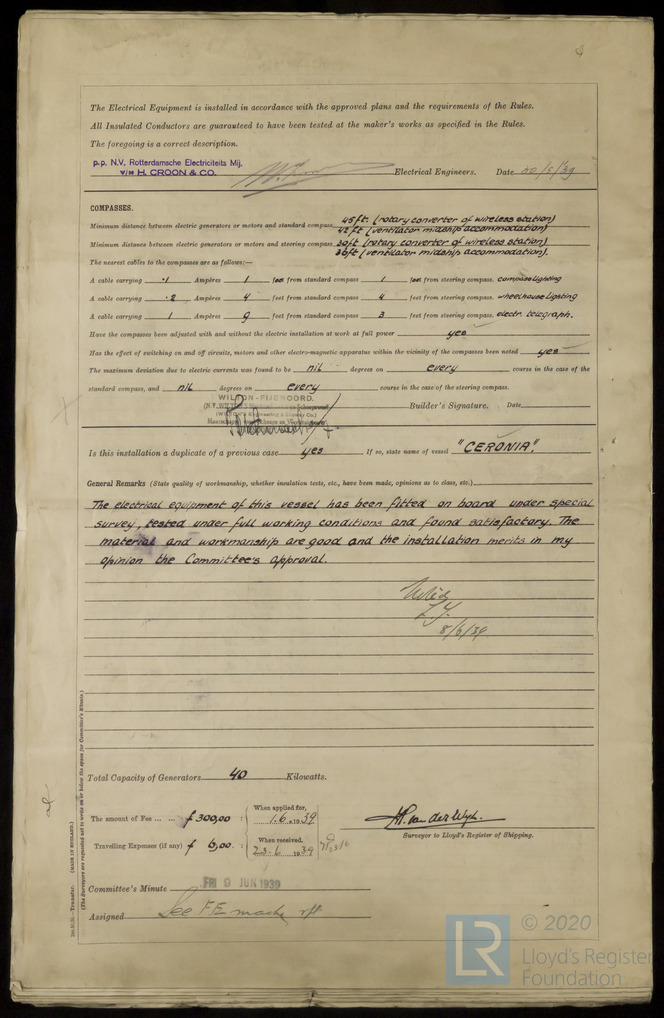 The Electrical Equipment is installed in accordance with the approved plans and the requirements of the Rules.
All Insulated Conductors are guaranteed to have been tested at the maker's works as specified in the Rules.
The foregoing is a correct description.
p.p. N.V. Rotterdamsche Electriciteits Mij,
v/h H. CROON & CO. Electrical Engineers. Date /5/39
COMPASSES.
45 ft. (rotary converter of wireless station)
Minimum distance between electric generators or motors and standard compass 42 ft (ventilator midship accommodation)
Minimum distance between electric generators or motors and steering compass 30ft (rotary converter of wireless station)
36ft (ventilator midship accommodation).
The nearest cables to the compasses are as follows:—
A cable carrying .1 Ampères 1 feet from standard compass 1 feet from steering compass. compass lighting
A cable carrying .2 Ampères 4 feet from standard compass 4 feet from steering compass. wheelhouse lighting
A cable carrying 1 Ampères 9 feet from standard compass 3 feet from steering compass. electr. telegraph.
Have the compasses been adjusted with and without the electric installation at work at full power yes
Has the effect of switching on and off circuits, motors and other electro-magnetic apparatus within the vicinity of the compasses been noted yes
The maximum deviation due to electric currents was found to be nil degrees on every course in the case of the
standard compass, and nil degrees on every course in the case of the steering compass.
WILTON-FIJENOORD.
Builder's Signature. Date
Is this installation a duplicate of a previous case yes If so, state name of vessel "CERONIA".
General Remarks (State quality of workmanship, whether insulation tests, etc., have been made, opinions as to class, etc.)
The electrical equipment of this vessel has been fitted on board under special
survey, tested under full working conditions and found satisfactory. The
material and workmanship are good and the installation merits in my
opinion the Committee's approval.
Noted
8/6/39
Total Capacity of Generators 40 Kilowatts.
The amount of Fee ... ... £ 300,00 : When applied for, 1.6.1939
Travelling Expenses (if any) £ 6,00 : When received, 23.6 1939
J.P. van der Wyk.
Surveyor to Lloyd's Register of Shipping.
Committee's Minute FRI 9 JUN 1939
Assigned See F.E. mache rpt
(MADE IN ENGLAND.)
(The Surveyors are requested not to write on or below the space for Committee's Minute.)
© 2020
LR
Lloyd's Register
Foundation